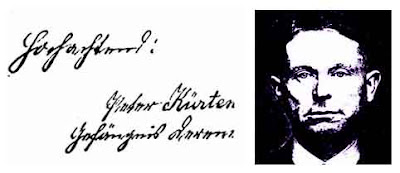 Hochachtend:
Peter Kürten
Gefängnis Deren.